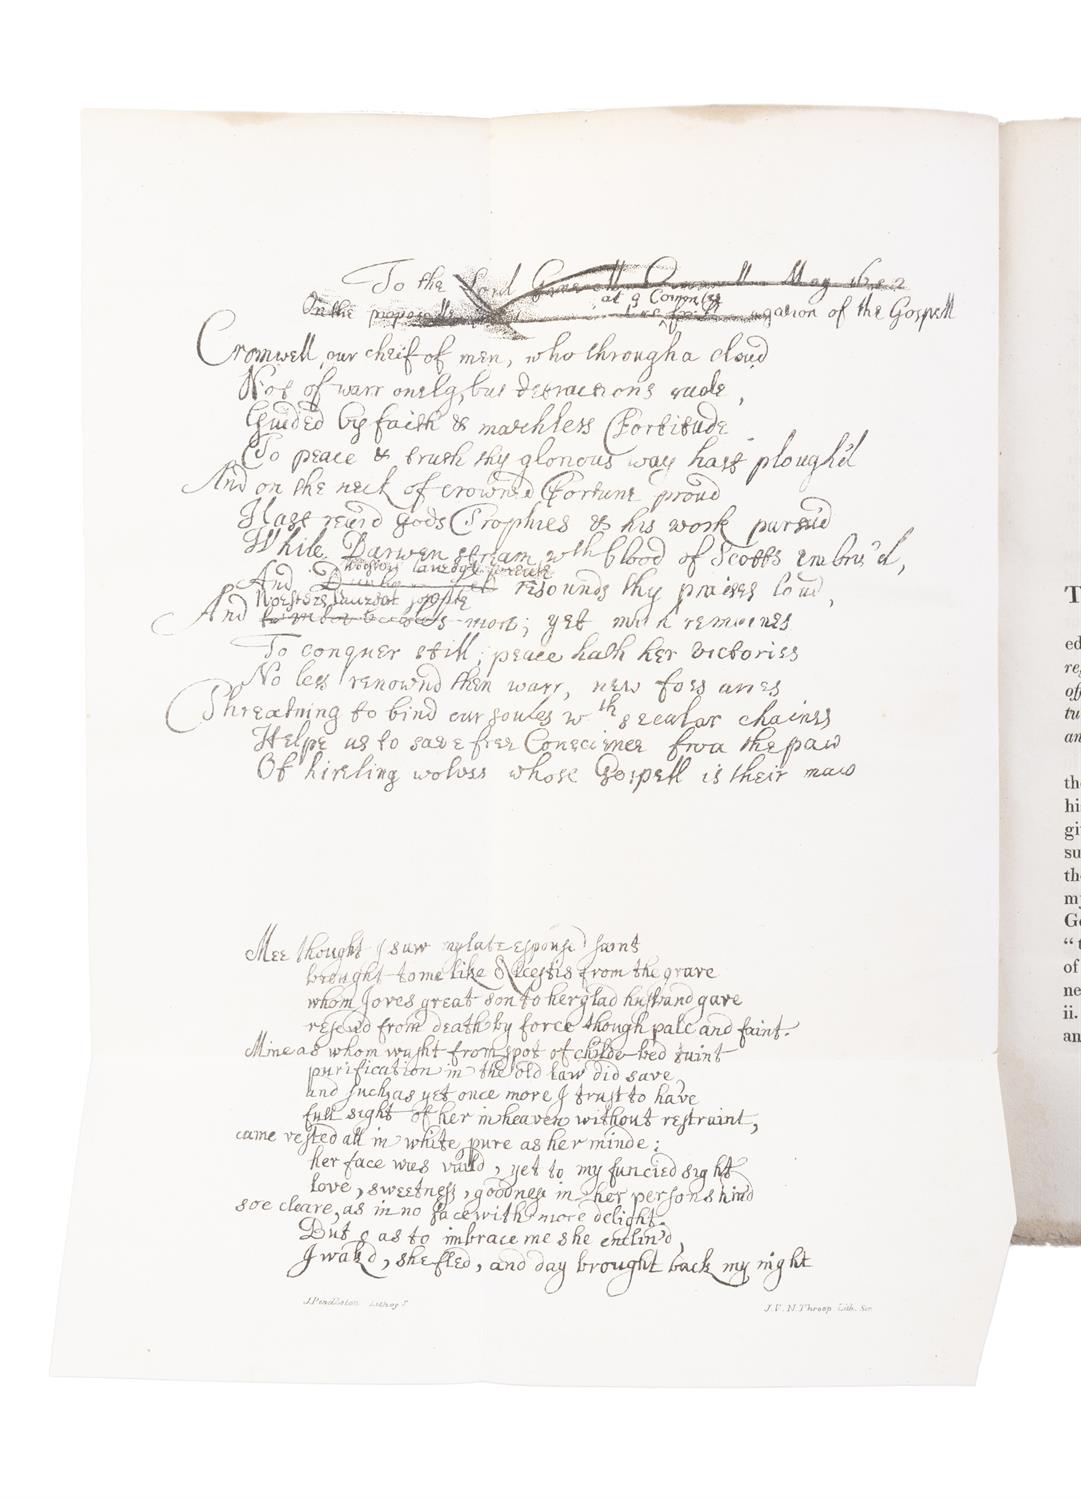 To the Lord Generall Cromwell May 1652
at ye Commtee
On the proposalls agation of the Gospell
Cromwell, our cheif of men, who through a cloud
Not of warr onely, but detractions rude,
Guided by faith & matchless Fortitude
To peace & truth thy glorious way hast plough'd
And on the neck of crowned Fortune proud
Hast rear'd Gods Trophies & his work pursu'd
While Darwen stream wth blood of Scotts imbru'd,
And resounds thy praises loud,
Worsters laureat
And more; yet much remaines
To conquer still; peace hath her victories
No less renownd then warr, new foes aries
Threatning to bind our soules wth secular chaines
Helpe us to save free Conscience from the paw
Of hireling wolves whose Gospell is their maw
Mee thought I saw my late espoused saint
brought to me like Alcestis from the grave
whom Joves great son to her glad husband gave
rescu'd from death by force though pale and faint.
Mine as whom washt from spot of childe-bed taint
purification in the old law did save,
and such, as yet once more I trust to have
full sight of her in heaven without restraint,
came vested all in white, pure as her minde:
her face was vaild, yet to my fancied sight
love, sweetness, goodness in her person shin'd
soe cleare, as in no face with more delight.
But o as to imbrace me she enclin'd,
I wak'd, she fled, and day brought back my night
J. Pendleton Lithogr.
J. V. N. Throop Lith. Sc.
T
ed
re
of
tu
an
the
his
gi
su
the
my
Go
"t
of
ne
ii.
an